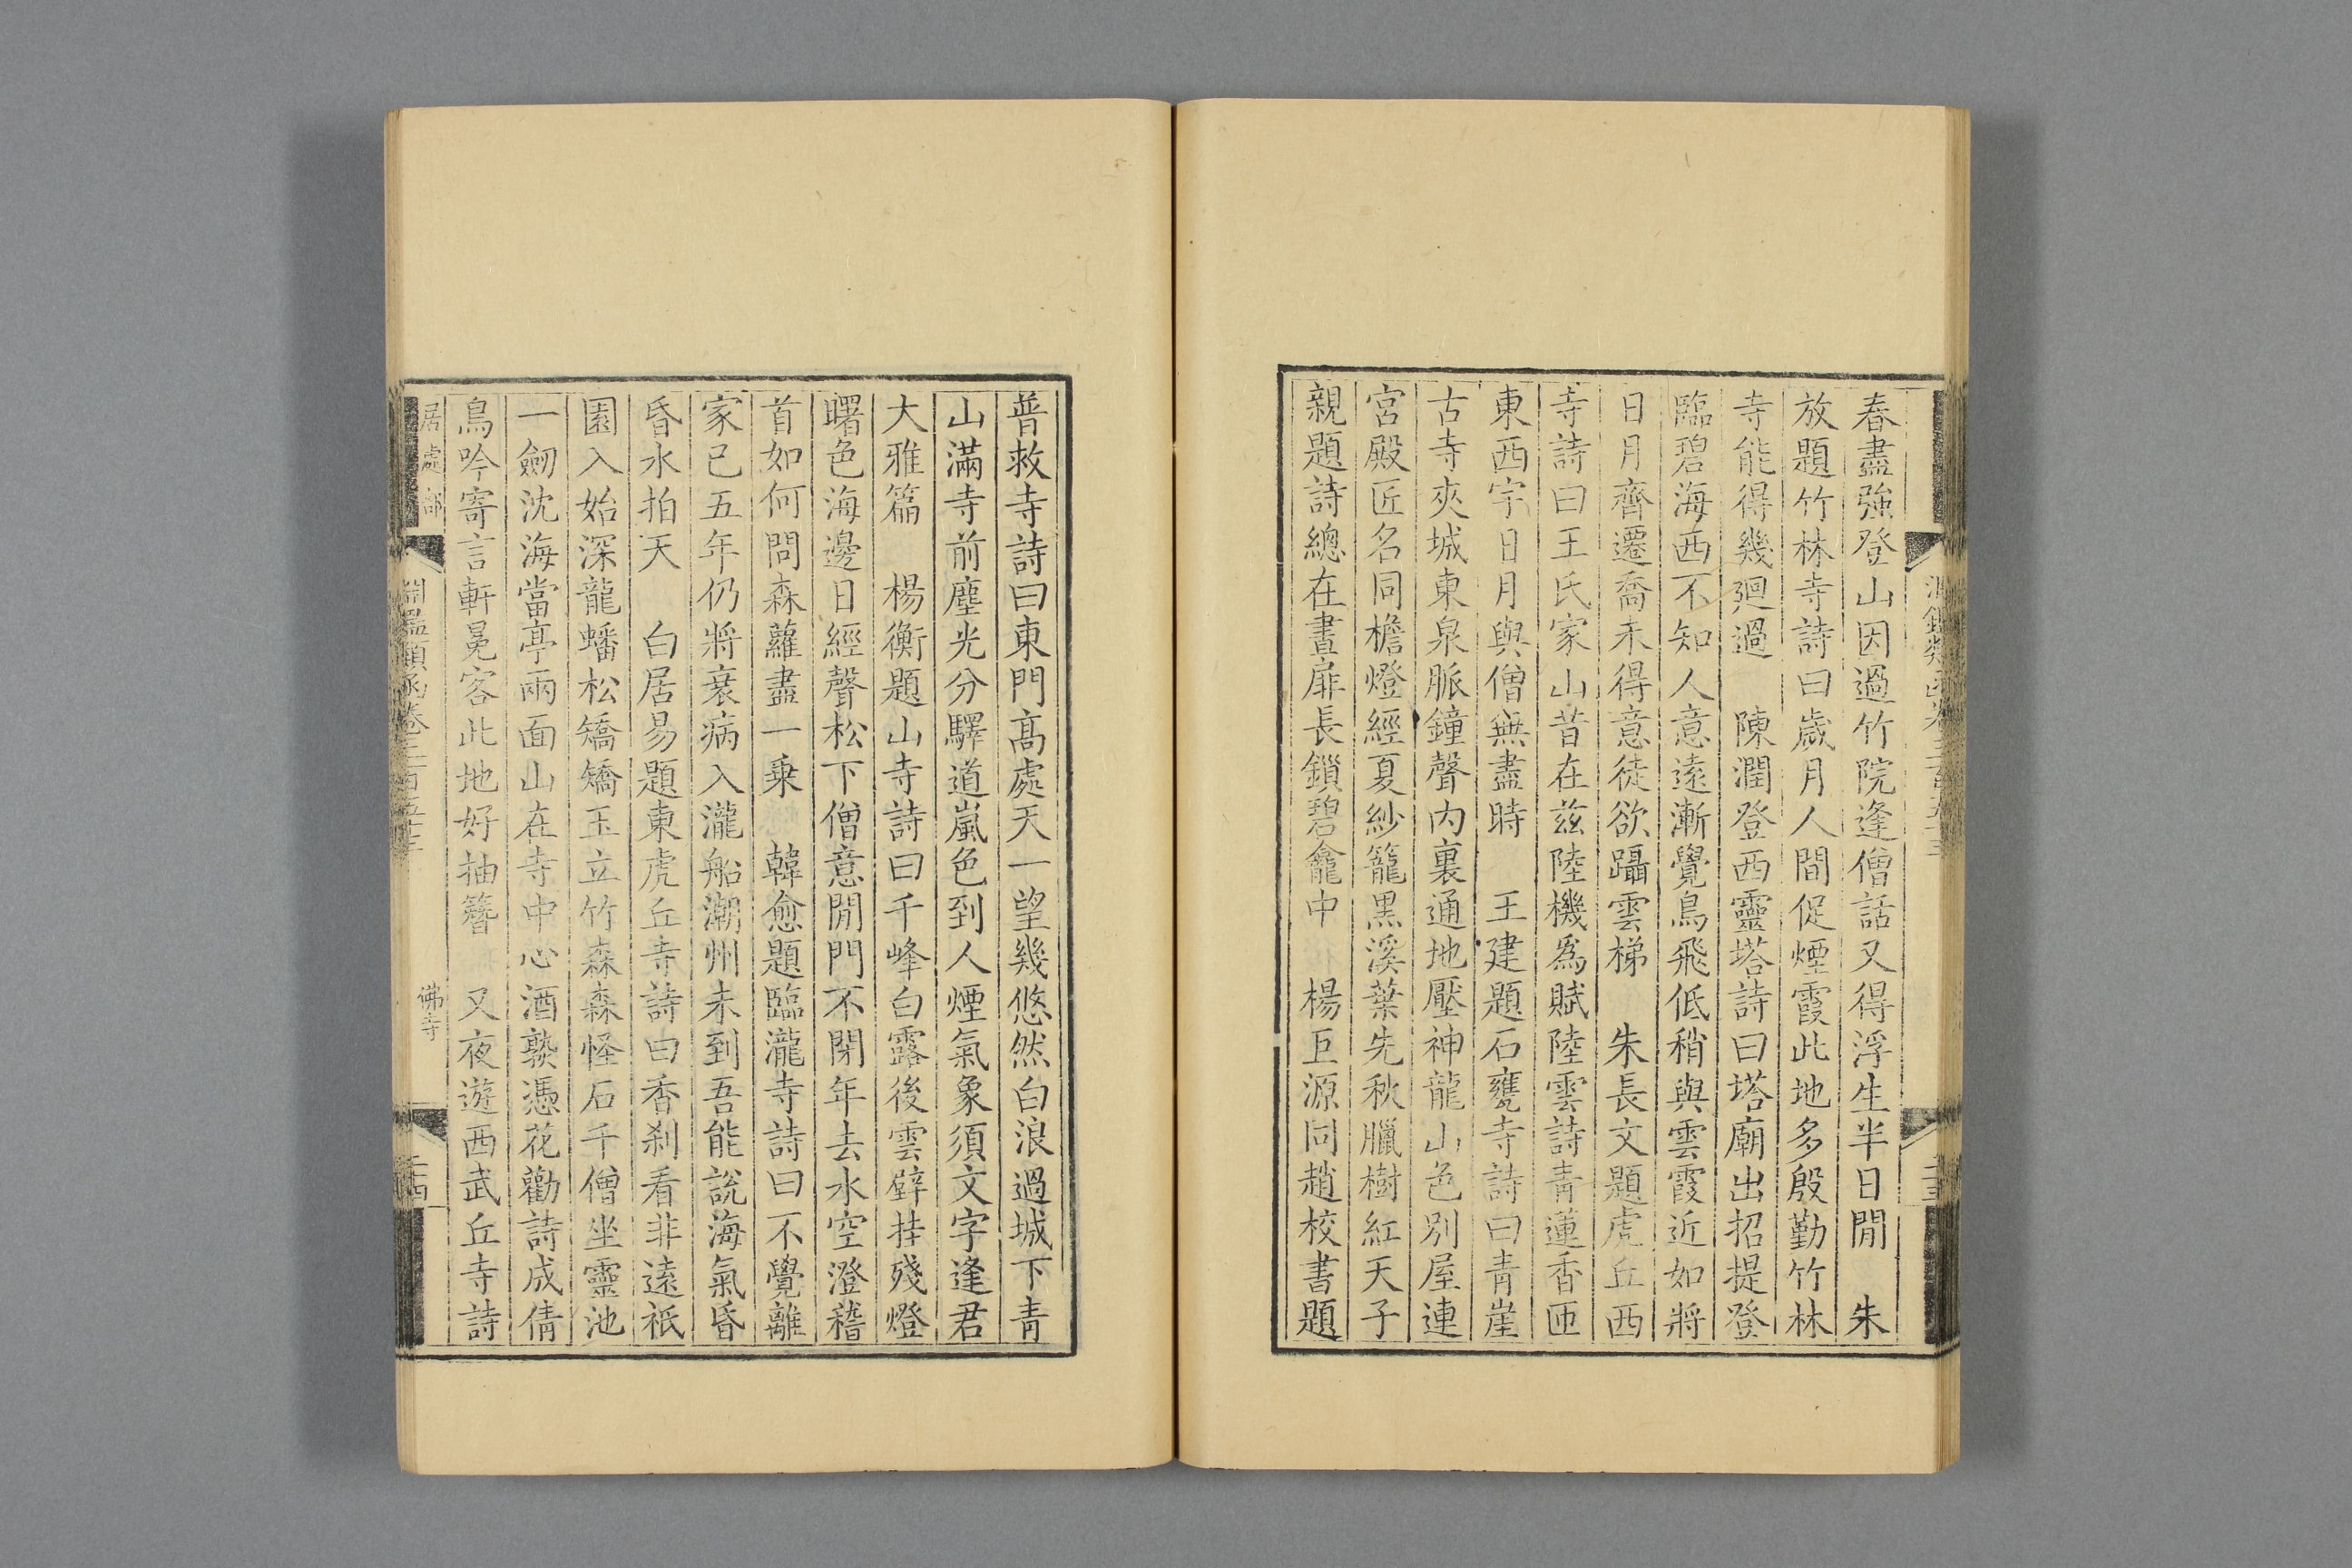 春盡強登山因過竹院逢僧話又得浮生半日閒　朱
放題竹林寺詩曰歲月人間促煙霞此地多殷勤竹林
寺能得幾廻過　陳潤登西靈塔詩曰塔廟出招提登
臨碧海西不知人意遠漸覺鳥飛低稍與雲霞近如將
日月齊遷喬未得意徒欲躡雲梯　朱長文題虎丘西
寺詩曰王氏家山昔在茲陸機爲賦陸雲詩青蓮香匝
東西宇日月與僧無盡時　王建題石甕寺詩曰青崖
古寺夾城東泉脈鐘聲內裏通地壓神龍山色別屋連
宮殿匠名同檐燈經夏紗籠黑溪葉先秋臘樹紅天子
親題詩總在畫扉長鎖碧龕中　楊巨源同趙校書題
普救寺詩曰東門高處天一望幾悠然白浪過城下青
山滿寺前塵光分驛道嵐色到人煙氣象須文字逢君
大雅篇　楊衡題山寺詩曰千峰白露後雲壁挂殘燈
曙色海邊日經聲松下僧意閒門不閉年去水空澄稽
首如何問森蘿盡一乘　韓愈題臨瀧寺詩曰不覺離
家已五年仍將衰病入瀧船潮州未到吾能說海氣昏
昏水拍天　白居易題東虎丘寺詩曰香刹看非遠祇
園入始深龍蟠松矯矯玉立竹森森怪石千僧坐靈池
一劒沈海當亭兩面山在寺中心酒熟憑花勸詩成倩
鳥吟寄言軒冕客此地好抽簪　又夜遊西武丘寺詩
居處部
淵鑑類函卷三百五十三
佛寺
二十四